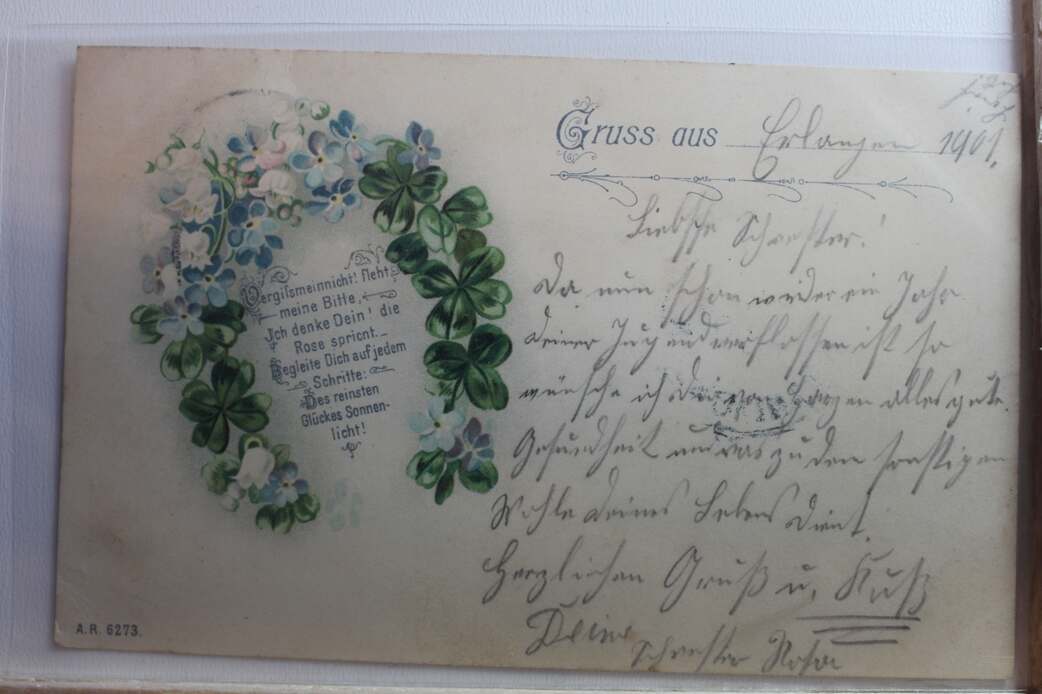 Gruss aus Erlangen 1901.
Liebste Schwester!
Da nun schon wieder ein Jahr
deiner Jugend verflossen ist so
wünsche ich Dir von Herzen alles gute
Gesundheit und was zu dem sonstigen
Wohle deines Lebens dient.
Herzlichen Gruß u. Kuß
Deine
Schwester Rosa
Vergissmeinnicht! fleht
meine Bitte,
Ich denke Dein! die
Rose spricht.
Begleite Dich auf jedem
Schritte:
Des reinsten
Glückes Sonnen-
licht!
A.R. 6273.